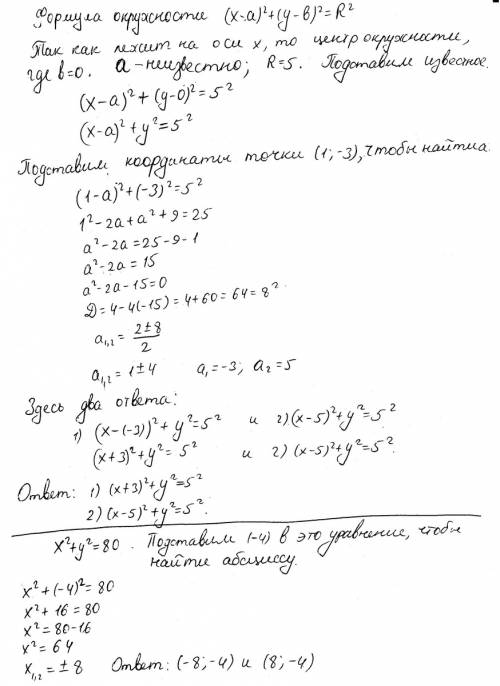 Формула окружности (x-a)²+(y-b)²=R²
Так как лежит на оси x, то центр окружности,
где b=0. a-неизвестно; R=5. Подставим известное.
(x-a)²+(y-0)²=5²
(x-a)²+y²=5²
Подставим координаты точки (1;-3), чтобы найти a.
(1-a)²+(-3)²=5²
1²-2a+a²+9=25
a²-2a=25-9-1
a²-2a=15
a²-2a-15=0
D=4-4(-15)=4+60=64=8²
a₁,₂= (2±8)/2
a₁,₂=1±4 a₁=-3; a₂=5
Здесь два ответа:
1) (x-(-3))²+y²=5² и 2) (x-5)²+y²=5²
(x+3)²+y²=5² и 2) (x-5)²+y²=5².
Ответ: 1) (x+3)²+y²=5²
2) (x-5)²+y²=5².
x²+y²=80. Подставим (-4) в это уравнение, чтобы
найти абсциссу.
x²+(-4)²=80
x²+16=80
x²=80-16
x²=64
x₁,₂=±8 Ответ: (-8;-4) и (8;-4)